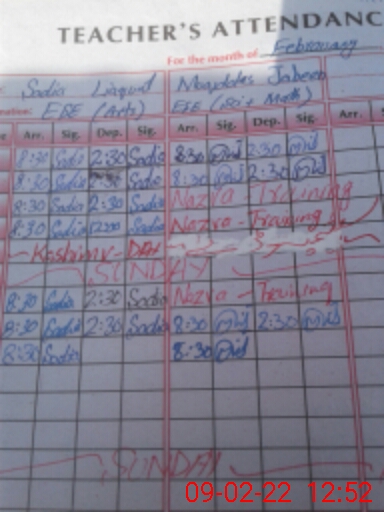 TEACHER'S ATTENDANC
For the month of February
Sadia Liaquat
ESE (Arts) ESE (Sci + Math)
Arr. Sig. Dep. Sig. Arr. Sig. Dep. Sig. Arr.
8:30 Sadia 2:30 Sadia 8:30 2:30
8:30 Sadia 2:30 Sadia 8:30 2:30
8:30 Sadia 2:30 Sadia Nazra - Training
8:30 Sadia 12:00 Sadia Nazra - Training
Kashmir - DAY
SUNDAY
8:30 Sadia 2:30 Sadia Nazra - Training
8:30 Sadia 2:30 Sadia 8:30 2:30
8:30 Sadia 8:30
SUNDAY
09-02-22 12:52